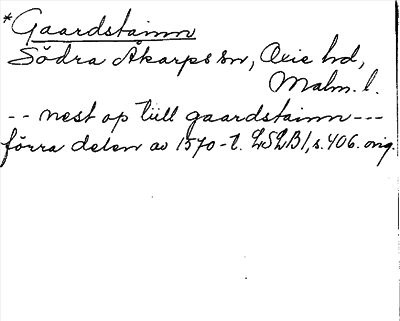 *Gaardstainn
Södra Åkarps sn, Oxie hd,
Malm. l.
-- nest op till gaardstainn ---
förra delen av 1570-t. LSLB1, s. 406. orig.